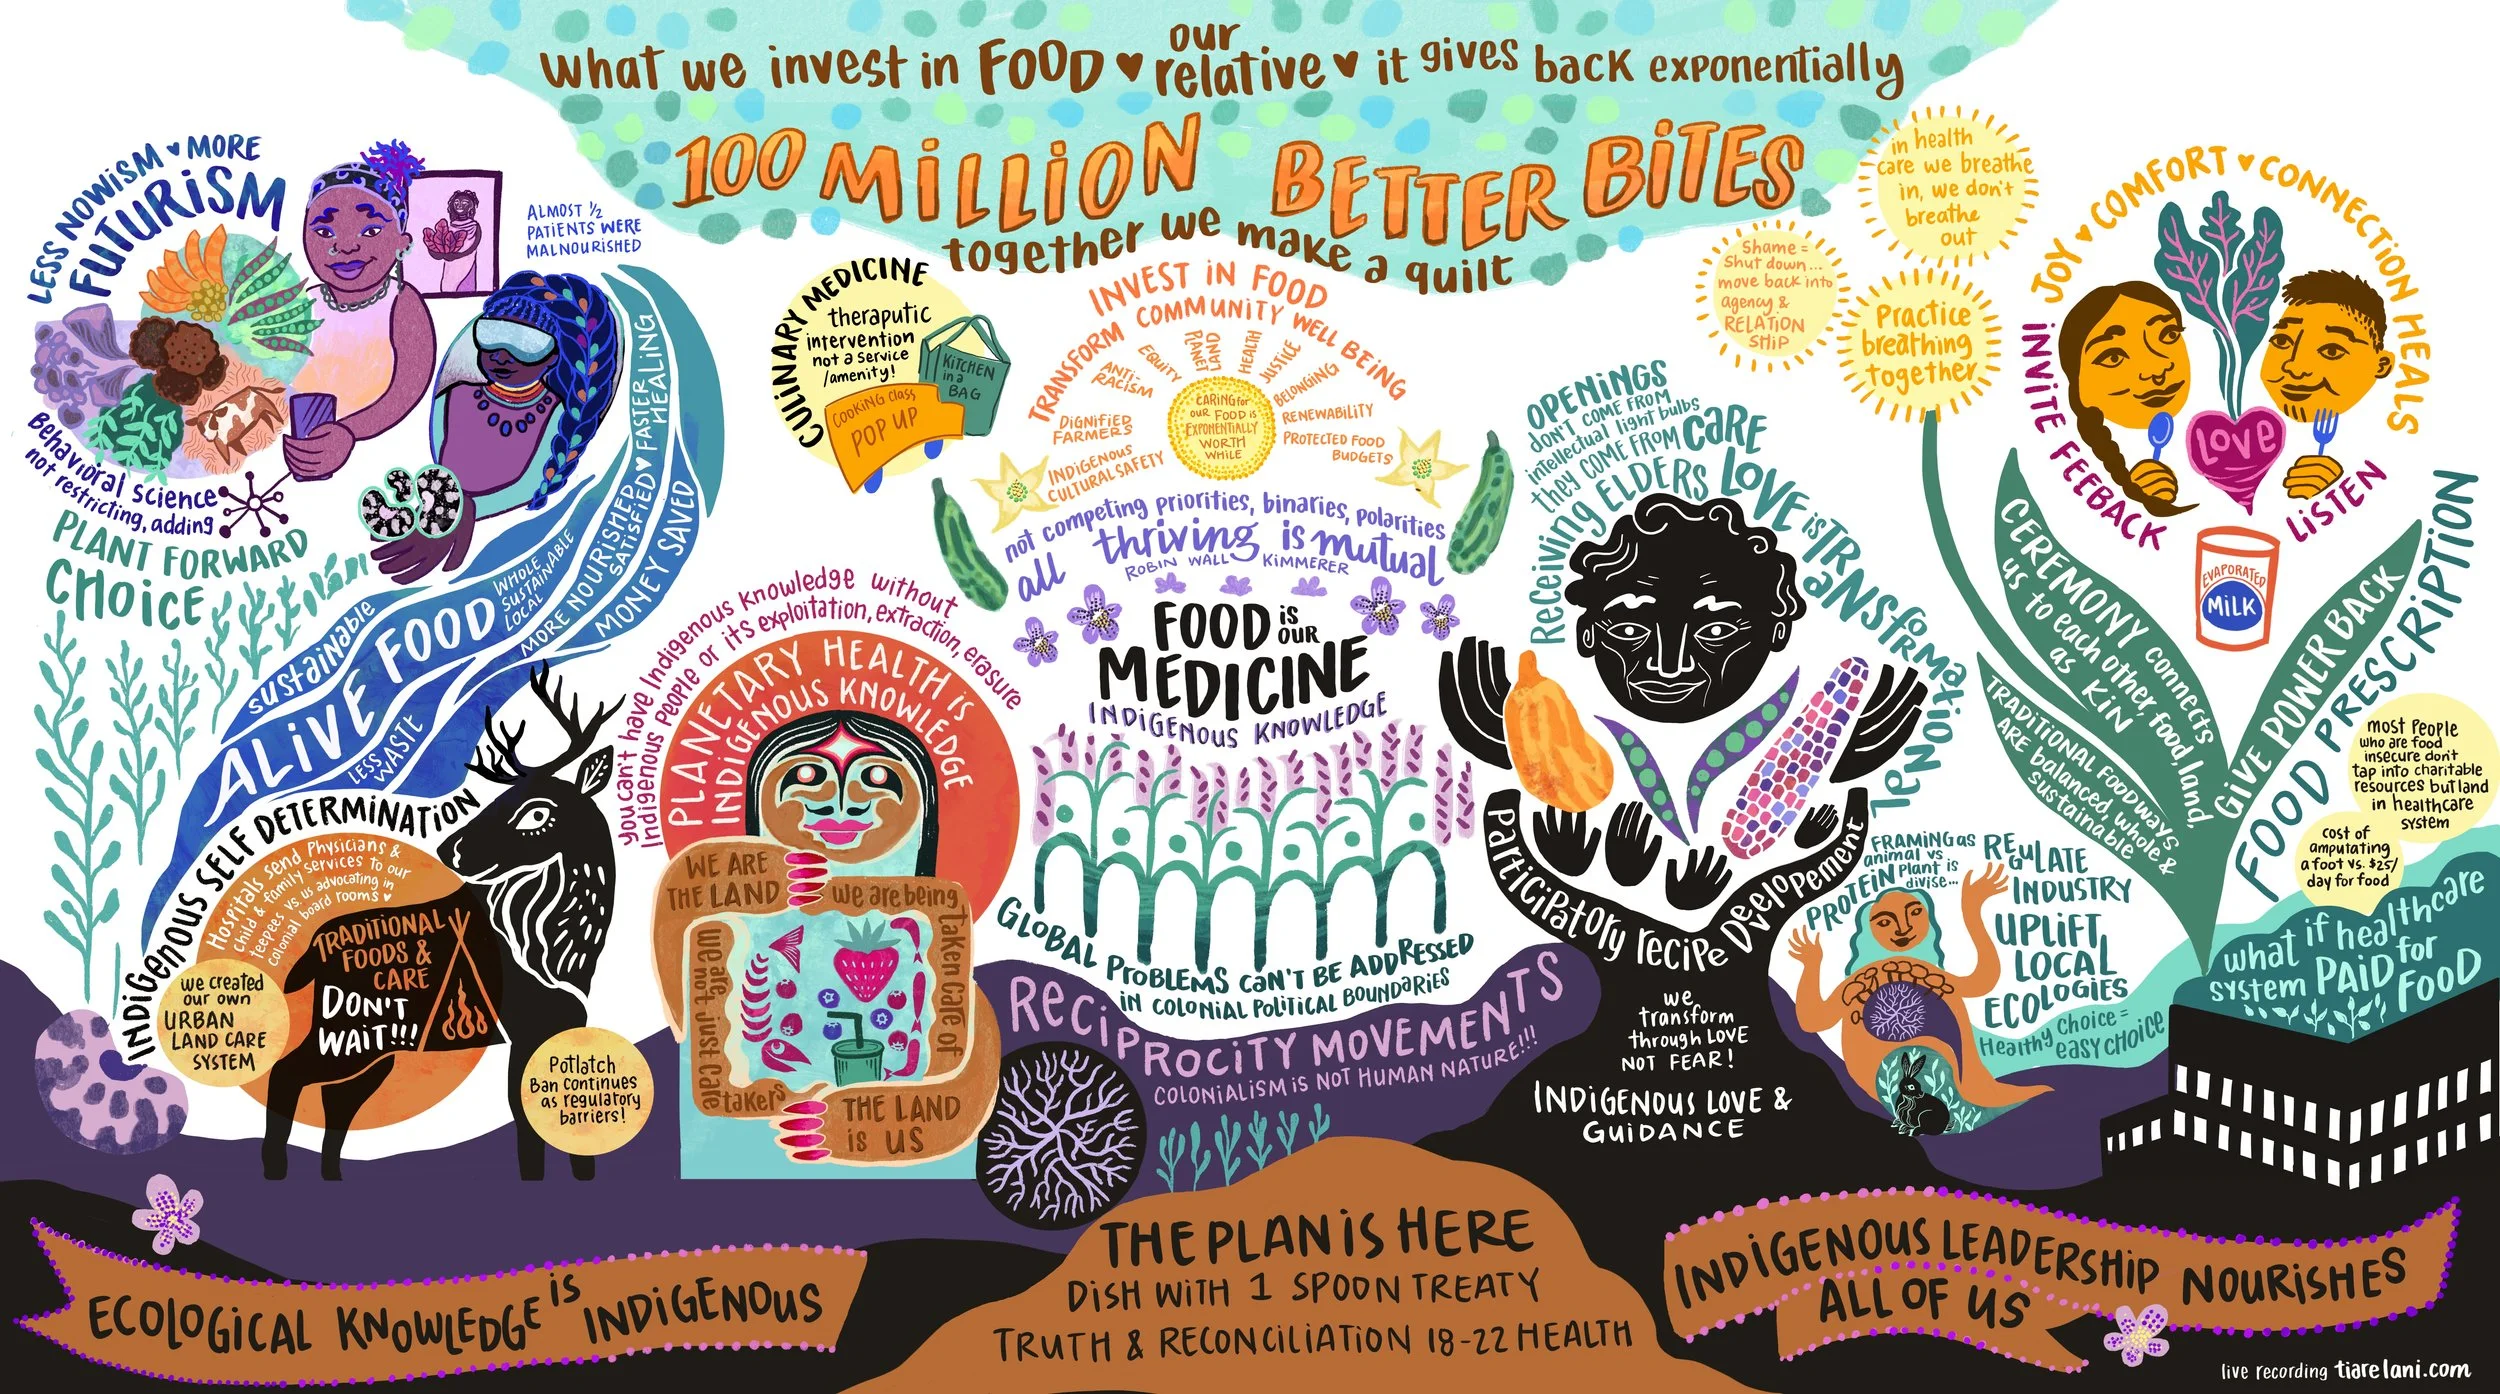 what we invest in FOOD ♥ our relative ♥ it gives back exponentially
100 MILLION BETTER BITES
together we make a quilt
LESS NOWISM ♥ MORE
FUTURISM
ALMOST ½
PATIENTS WERE
MALNOURISHED
Behavioral science
not restricting, adding
PLANT FORWARD
CHOICE
sustainable
ALIVE FOOD
WHOLE
SUSTAINABLE
LOCAL
MORE NOURISHED
SATISFIED ♥ FASTER
HEALING
MONEY SAVED
LESS
WASTE
INDIGENOUS SELF DETERMINATION
Hospitals send Physicians &
child & family services to our
teepees vs. us advocating in
colonial board rooms ♥
TRADITIONAL
FOODS &
CARE
DON'T
WAIT!!!
we created
our own
URBAN
LAND CARE
SYSTEM
Potlatch
Ban continues
as regulatory
barriers!
CULINARY MEDICINE
theraputic
intervention
not a service
/amenity!
KITCHEN
in a
BAG
COOKING CLASS
POP UP
you can't have Indigenous Knowledge without
Indigenous People or its exploitation, extraction, erasure
PLANETARY HEALTH IS
INDIGENOUS KNOWLEDGE
WE ARE
THE LAND
we are being
taken care of
we are
not just care
takers
THE LAND
is US
INVEST IN FOOD
TRANSFORM COMMUNITY WELL BEING
INDIGENOUS
CULTURAL SAFETY
DIGNIFIED
FARMERS
ANTI-
RACISM
EQUITY
LAND
PLANET
HEALTH
JUSTICE
BELONGING
RENEWABILITY
PROTECTED FOOD
BUDGETS
CARING for
our FOOD is
EXPONENTIALLY
WORTH
WHILE
not competing priorities, binaries, polarities
all thriving is mutual
ROBIN WALL KIMMERER
FOOD is OUR
MEDICINE
INDIGENOUS KNOWLEDGE
GLOBAL PROBLEMS CAN'T BE ADDRESSED
IN COLONIAL POLITICAL BOUNDARIES
RECIPROCITY MOVEMENTS
COLONIALISM is NOT HUMAN NATURE!!!
OPENINGS
DON'T COME FROM
intellectual light bulbs
they come from CARE
Receiving ELDERS LOVE is TRANSFORMATIONAL
Participatory recipe Developement
we
transform
through LOVE
NOT FEAR!
INDIGENOUS LOVE &
GUIDANCE
in health
care we breathe
in, we don't
breathe
out
Shame =
Shut down...
move back into
agency &
RELATION
SHIP
Practice
breathing
together
JOY ♥ COMFORT ♥ CONNECTION HEALS
INVITE FEEBACK
LISTEN
LOVE
EVAPORATED
MILK
CEREMONY connects
us to each other, food, land,
as KIN
TRADITIONAL FOODWAYS
ARE balanced, whole &
sustainable
GIVE POWER BACK
FOOD PRESCRIPTION
most People
who are food
insecure don't
tap into charitable
resources but land
in healthcare
system
cost of
amputating
a foot vs. $25/
day for food
what if healthcare
system PAID for
FOOD
FRAMING as
animal vs
PROTEIN plant is
divise...
REGULATE
INDUSTRY
UPLIFT
LOCAL
ECOLOGIES
Healthy choice =
easy choice
ECOLOGICAL KNOWLEDGE is INDIGENOUS
THE PLAN is HERE
DISH WITH 1 SPOON TREATY
TRUTH & RECONCILIATION 18-22 HEALTH
INDIGENOUS LEADERSHIP NOURISHES
ALL OF US
live recording tiarelani.com